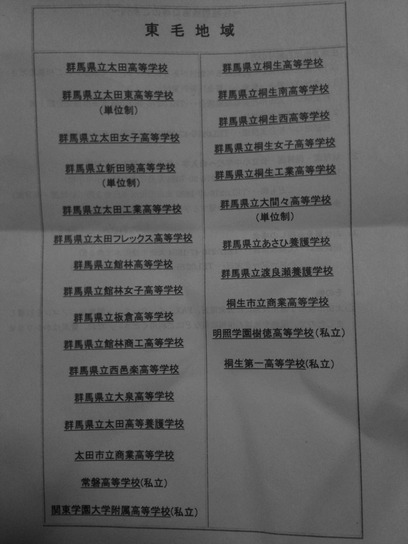 東毛地域
群馬県立太田高等学校
群馬県立太田東高等学校
(単位制)
群馬県立太田女子高等学校
群馬県立新田暁高等学校
(単位制)
群馬県立太田工業高等学校
群馬県立太田フレックス高等学校
群馬県立館林高等学校
群馬県立館林女子高等学校
群馬県立板倉高等学校
群馬県立館林商工高等学校
群馬県立西邑楽高等学校
群馬県立大泉高等学校
群馬県立太田高等養護学校
太田市立商業高等学校
常磐高等学校(私立)
関東学園大学附属高等学校(私立)
群馬県立桐生高等学校
群馬県立桐生南高等学校
群馬県立桐生西高等学校
群馬県立桐生女子高等学校
群馬県立桐生工業高等学校
群馬県立大間々高等学校
(単位制)
群馬県立あさひ養護学校
群馬県立渡良瀬養護学校
桐生市立商業高等学校
明照学園樹徳高等学校(私立)
桐生第一高等学校(私立)